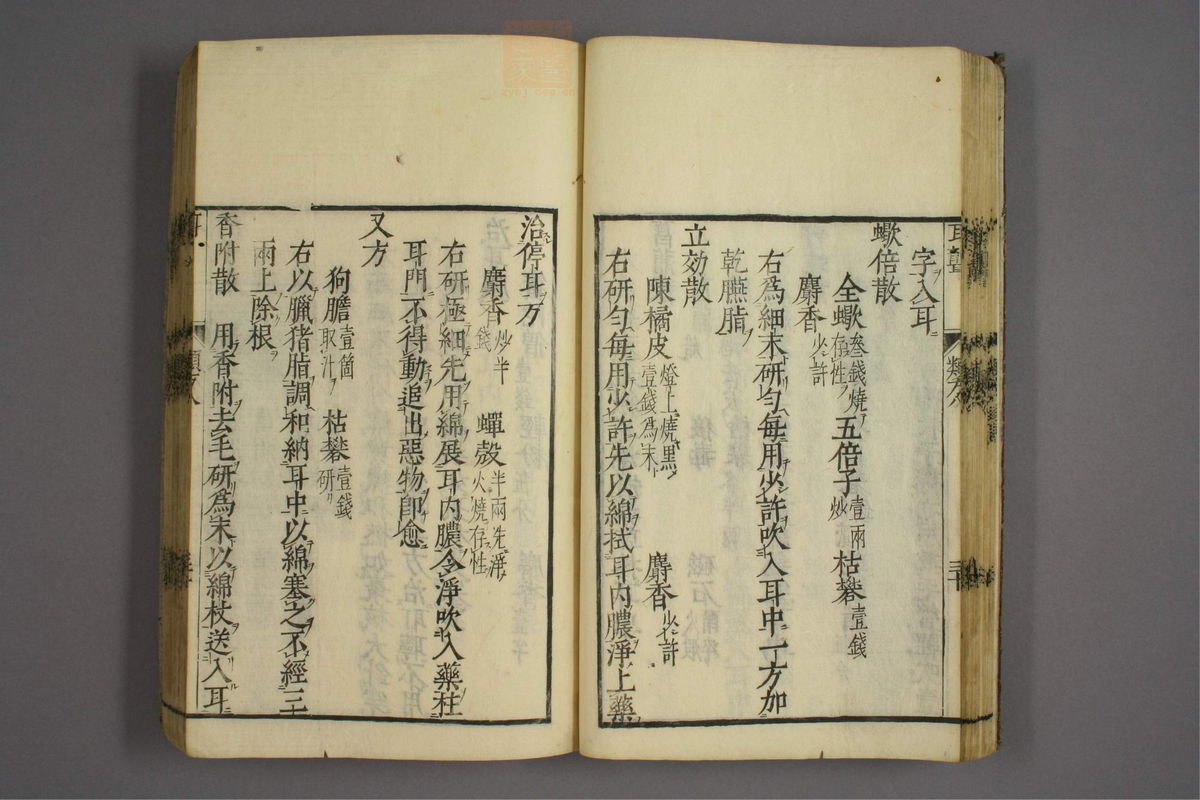 字入耳
蠍倍散
全蠍叁錢燒存性 五倍子壹兩炒 枯礬壹錢
麝香少許
右爲細末研勻每用少許吹入耳中一方加
乾臙脂
立効散
陳橘皮燈上燒黑壹錢爲末 麝香少許
右研勻每用少許先以綿拭耳內膿淨上藥
治停耳方
麝香炒半錢 蟬殼半兩洗淨火燒存性
右研極細先用綿展耳內膿令淨吹入藥柱
耳門不得動追出惡物卽愈
又方
狗膽壹箇取汁 枯礬壹錢研
右以臘猪脂調和納耳中以綿塞之不經三
兩上除根
香附散 用香附去毛研爲末以綿杖送入耳